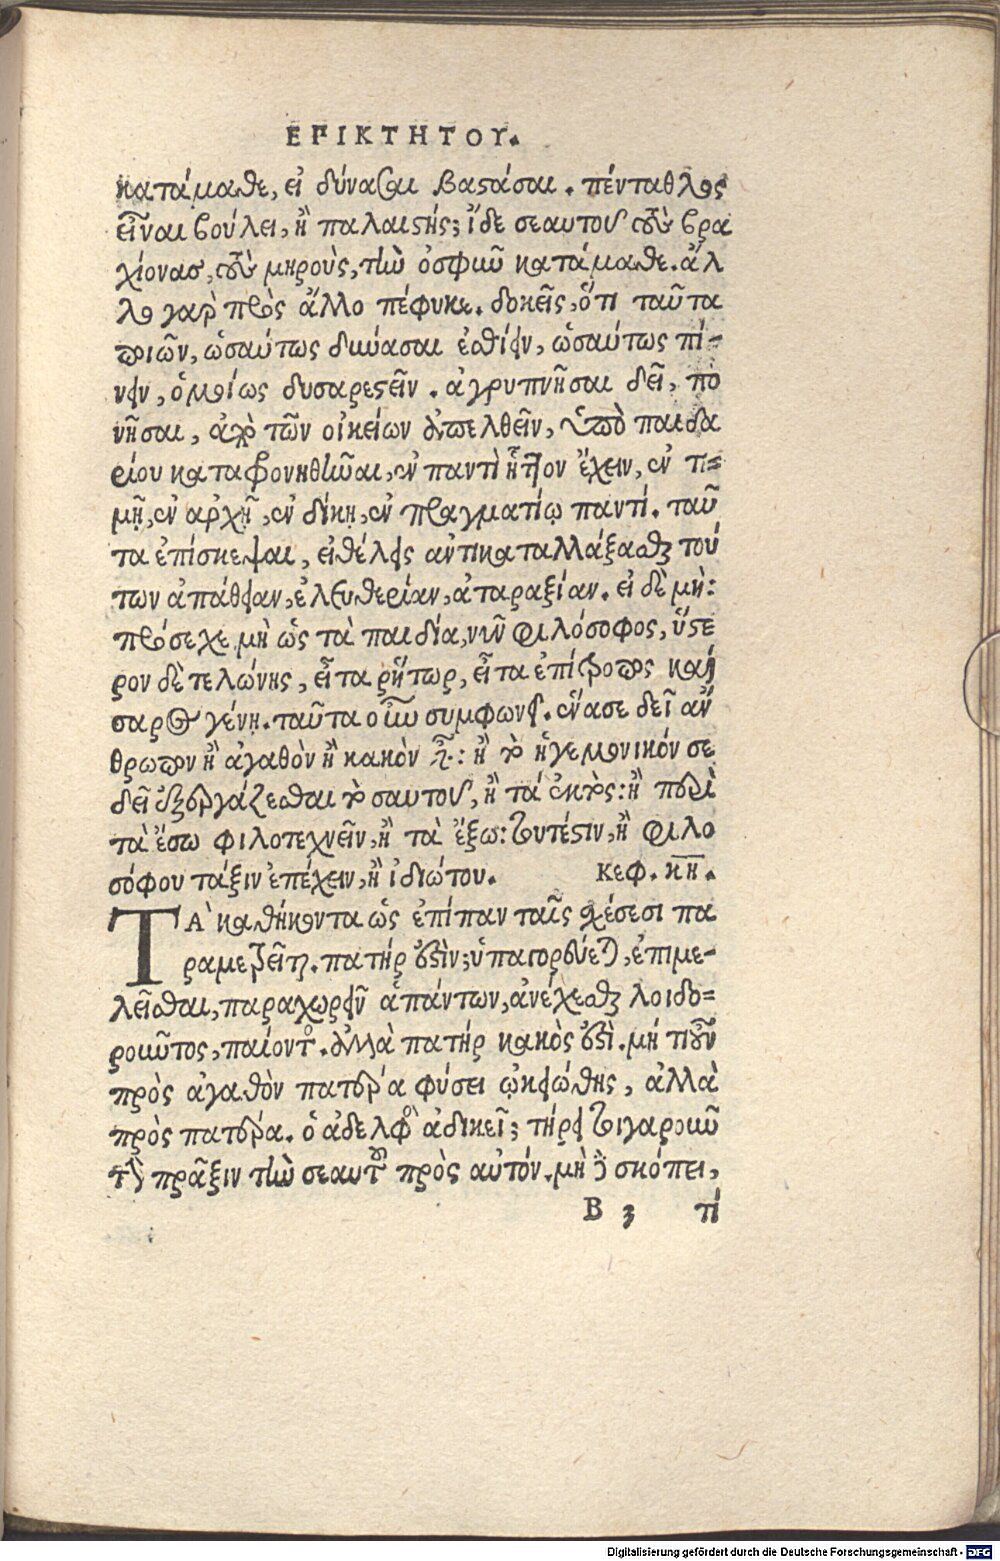 ΕΡΙΚΤΗΤΟΥ.
κατάμαθε, εἰ δύνασαι βαϛάσαι. πένταθλος
εἶναι βούλει, ἢ παλαιϛής; ἴδε σεαυτοῦ τοὺς βρα
χίονας, τοὺς μηροὺς, τὴν ὀσφὺν κατάμαθε. ἄλ
λο γαρ πρὸς ἄλλο πέφυκε. δοκεῖς, ὅτι ταῦτα
ποιῶν, ὡσαύτως δύνασαι ἐσθίειν, ὡσαύτως πί-
νειν, ὁμοίως δυσαρεϛεῖν. ἀγρυπνῆσαι δεῖ, πο
νῆσαι, ἀπὸ τῶν οἰκείων ἀπελθεῖν, ὑπὸ παιδα
ρίου καταφρονηθῆναι, ἐν παντὶ ἧττον ἔχειν, ἐν τι-
μῇ, ἐν ἀρχῇ, ἐν δίκῃ, ἐν πραγματίῳ παντί. ταῦ
τα ἐπίσκεψαι, εἰ θέλεις ἀντικαταλλάξασθαι τού
των ἀπάθειαν, ἐλευθερίαν, ἀταραξίαν. εἰ δὲ μὴ:
πρόσεχε μὴ ὡς τὰ παιδία, νῦν φιλόσοφος, ὕϛε
ρον δὲ τελώνης, εἶτα ῥήτωρ, εἶτα ἐπίτροπος καί
σαρος γένῃ. ταῦτα οὐ συμφωνεῖ. ἕνα σε δεῖ ἄν
θρωπον ἢ ἀγαθὸν ἢ κακὸν εἶναι: ἢ τὸ ἡγεμονικόν σε
δεῖ ἐξεργάζεσθαι τὸ σαυτοῦ, ἢ τὰ ἐκτὸς: ἢ περὶ
τὰ ἔσω φιλοτεχνεῖν, ἢ τὰ ἔξω: τουτέϛιν, ἢ φιλο
σόφου τάξιν ἐπέχειν, ἢ ἰδιώτου. Κεφ. κη.
ΤΑ καθήκοντα ὡς ἐπίπαν ταῖς σχέσεσι πα
ραμετρεῖται. πατήρ ἐϛὶν; ὑπαγορεύεται, ἐπιμε-
λεῖσθαι, παραχωρεῖν ἁπάντων, ἀνέχεσθαι λοιδο-
ροῦντος, παίοντος. ἀλλὰ πατήρ κακὸς ἐϛὶ. μή τι οὖν
πρὸς ἀγαθὸν πατέρα φύσει ᾠκειώθης, ἀλλὰ
πρὸς πατέρα. ὁ ἀδελφὸς ἀδικεῖ; τήρει τοιγαροῦν
τὴν πρᾶξιν τὴν σεαυτοῦ πρὸς αὐτόν. μὴ δὲ σκόπει,
B 3 τί
Digitalisierung gefördert durch die Deutsche Forschungsgemeinschaft - DFG